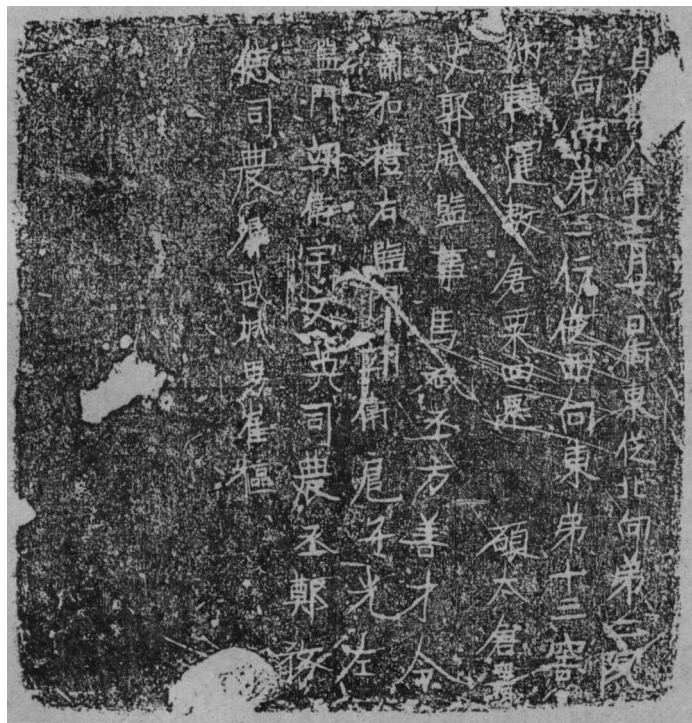 貞觀八年十二月廿日街東從北向弟院
北向南弟二行從西向東弟十三窖
納轉運敖倉粟四 碩太倉署
史郭威監事馬丞方善才令
蕭和禮右監門翊衛扈子光左
監門翊衛宇文英司農丞鄭
總司農卿武城男崔樞